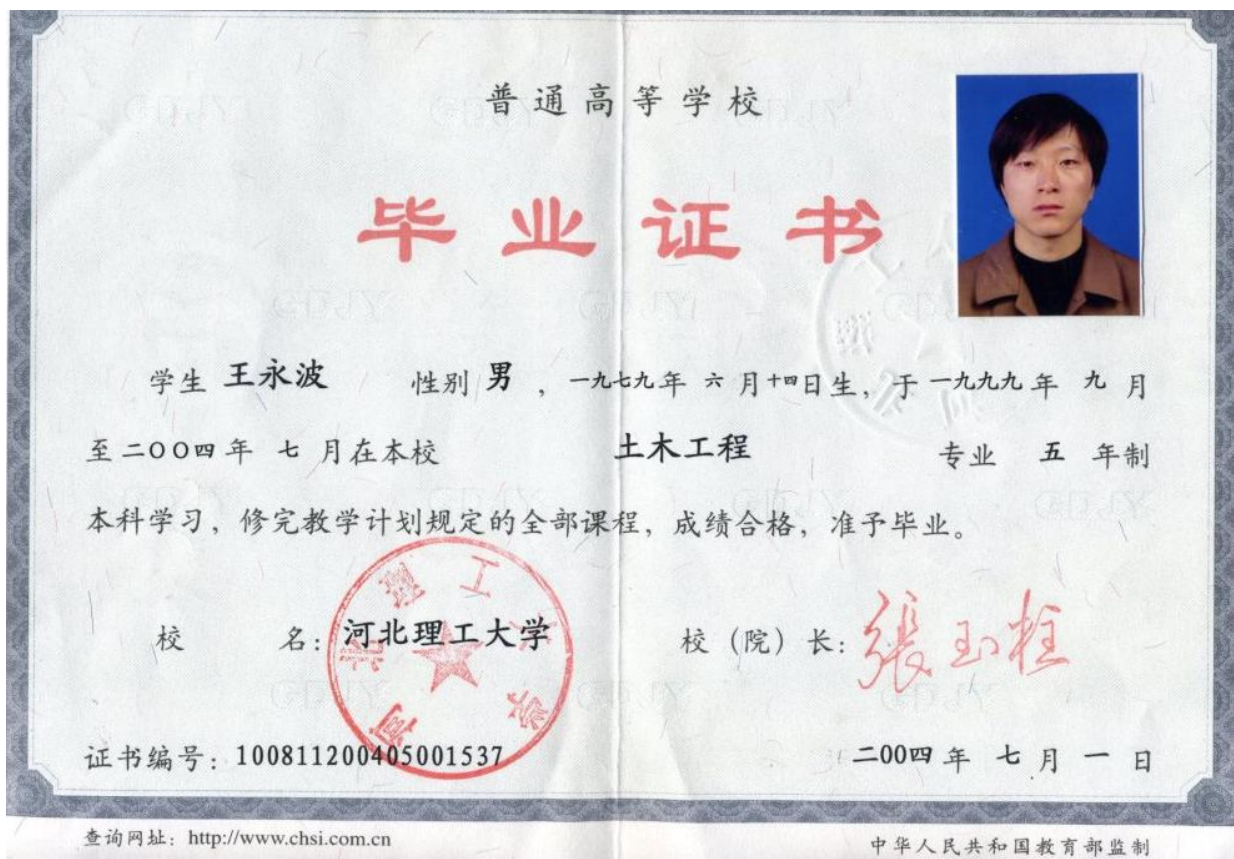 普通高等学校
毕业证书
学生 王永波 性别 男 , 一九七九年 六 月 十四日生, 于 一九九九 年 九 月
至 二〇〇四 年 七 月在本校 土木工程 专业 五 年制
本科学习, 修完教学计划规定的全部课程, 成绩合格, 准予毕业。
校 名: 河北理工大学 校 (院) 长: 張玉柱
河北理工大学
证书编号: 100811200405001537 二00四 年 七 月 一 日
查询网址: http://www.chsi.com.cn 中华人民共和国教育部监制